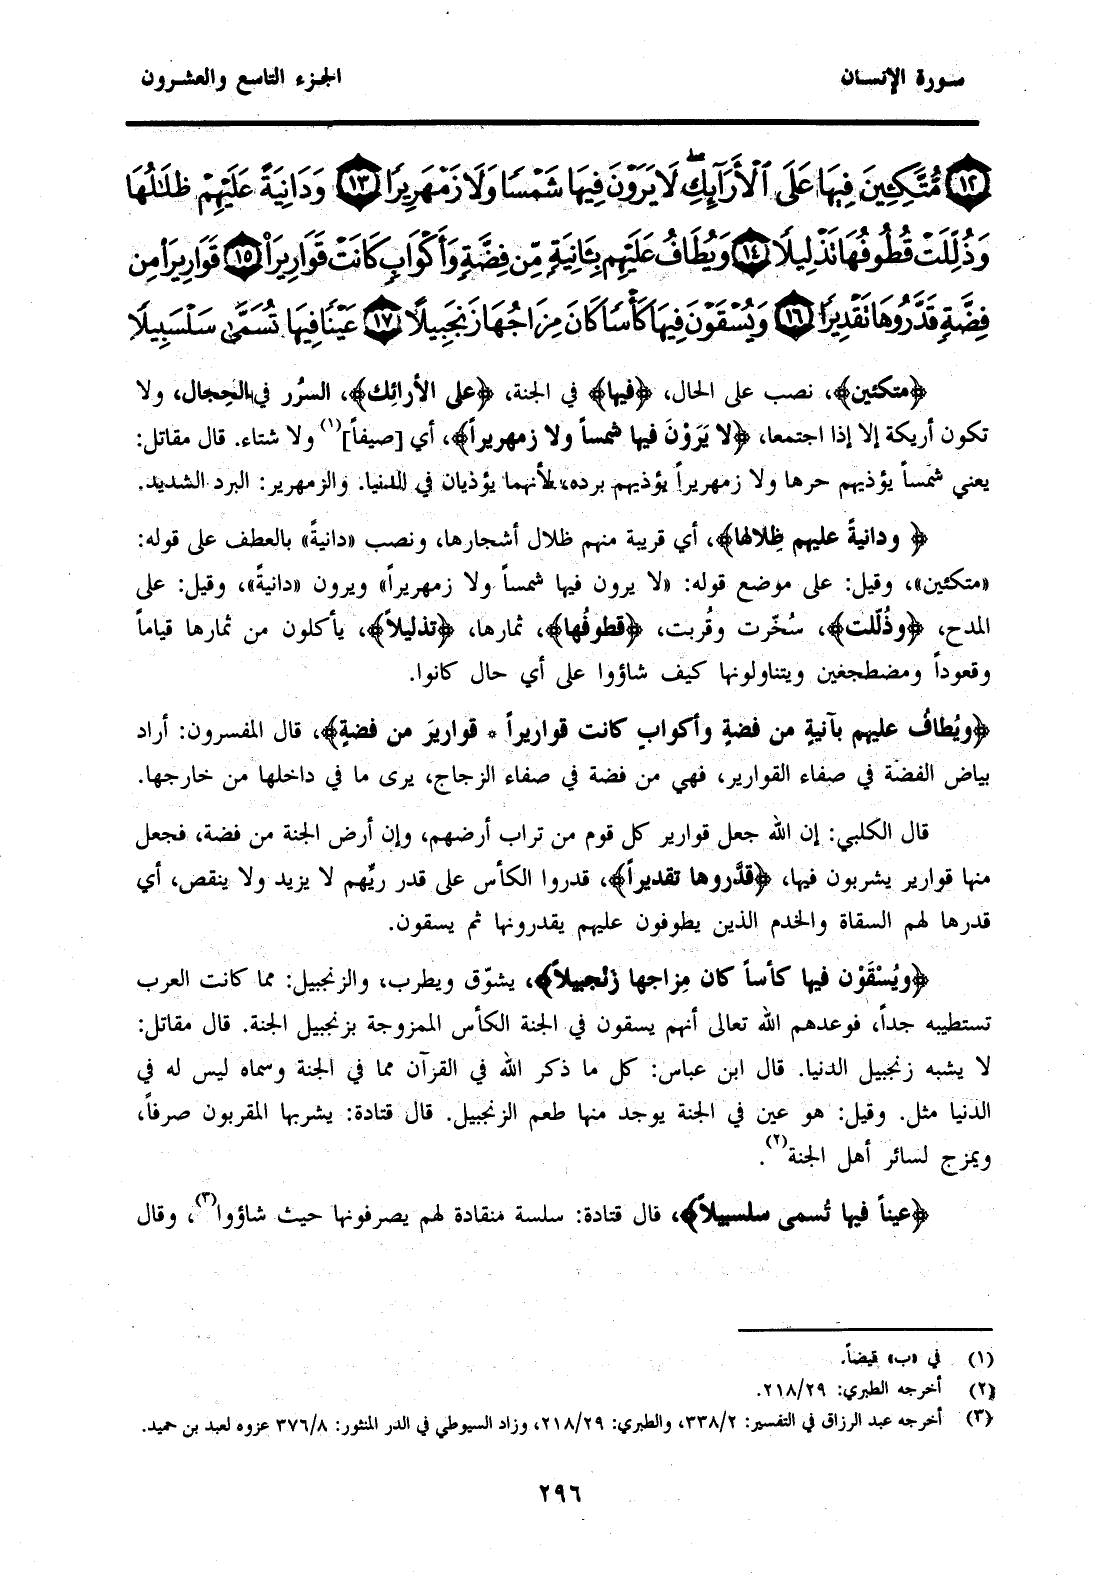 سورة الإنسان
الجزء التاسع والعشرون
﴿١٢﴾ مُّتَّكِئِينَ فِيهَا عَلَى ٱلْأَرَآئِكِ ۖ لَا يَرَوْنَ فِيهَا شَمْسًا وَلَا زَمْهَرِيرًا ﴿١٣﴾ وَدَانِيَةً عَلَيْهِمْ ظِلَٰلُهَا
وَذُلِّلَتْ قُطُوفُهَا تَذْلِيلًا ﴿١٤﴾ وَيُطَافُ عَلَيْهِم بِـَٔانِيَةٍ مِّن فِضَّةٍ وَأَكْوَابٍ كَانَتْ قَوَارِيرَا۠ ﴿١٥﴾ قَوَارِيرَا۟ مِن
فِضَّةٍ قَدَّرُوهَا تَقْدِيرًا ﴿١٦﴾ وَيُسْقَوْنَ فِيهَا كَأْسًا كَانَ مِزَاجُهَا زَنجَبِيلًا ﴿١٧﴾ عَيْنًا فِيهَا تُسَمَّىٰ سَلْسَبِيلًا
﴿متكئين﴾، نصب على الحال، ﴿فيها﴾ في الجنة، ﴿على الأرائك﴾، السرُر في الحِجال، ولا
تكون أريكة إلا إذا اجتمعا، ﴿لا يَرَوْنَ فيها شمساً ولا زمهريراً﴾، أي [صيفاً](١) ولا شتاء. قال مقاتل:
يعني شمساً يؤذيهم حرها ولا زمهريراً يؤذيهم برده، لأنهما يؤذيان في الدنيا. والزمهرير: البرد الشديد.
﴿ ودانيةً عليهم ظِلالها﴾، أي قريبة منهم ظلال أشجارها، ونصب «دانيةً» بالعطف على قوله:
«متكئين»، وقيل: على موضع قوله: «لا يرون فيها شمساً ولا زمهريراً» ويرون «دانيةً»، وقيل: على
المدح، ﴿وذُلّلت﴾، سُخّرت وقُربت، ﴿قطوفُها﴾، ثمارها، ﴿تذليلاً﴾، يأكلون من ثمارها قياماً
وقعوداً ومضطجعين ويتناولونها كيف شاؤوا على أي حال كانوا.
﴿ويُطافُ عليهم بآنيةٍ من فضةٍ وأكوابٍ كانت قواريراً * قواريرَ من فضةٍ﴾، قال المفسرون: أراد
بياض الفضة في صفاء القوارير، فهي من فضة في صفاء الزجاج، يرى ما في داخلها من خارجها.
قال الكلبي: إن الله جعل قوارير كل قوم من تراب أرضهم، وإن أرض الجنة من فضة، فجعل
منها قوارير يشربون فيها، ﴿قدَّروها تقديراً﴾، قدروا الكأس على قدر ريِّهم لا يزيد ولا ينقص، أي
قدرها لهم السقاة والخدم الذين يطوفون عليهم يقدرونها ثم يسقون.
﴿ويُسْقَوْن فيها كأساً كان مِزاجها زنْجبيلاً﴾، يشوّق ويطرب، والزنجبيل: مما كانت العرب
تستطيبه جداً، فوعدهم الله تعالى أنهم يسقون في الجنة الكأس الممزوجة بزنجبيل الجنة. قال مقاتل:
لا يشبه زنجبيل الدنيا. قال ابن عباس: كل ما ذكر الله في القرآن مما في الجنة وسماه ليس له في
الدنيا مثل. وقيل: هو عين في الجنة يوجد منها طعم الزنجبيل. قال قتادة: يشربها المقربون صرفاً،
ويمزج لسائر أهل الجنة(٢).
﴿عيناً فيها تُسمى سلسبيلاً﴾، قال قتادة: سلسة منقادة لهم يصرفونها حيث شاؤوا(٣)، وقال
(١) في «ب» قيضاً.
(٢) أخرجه الطبري: ٢١٨/٢٩.
(٣) أخرجه عبد الرزاق في التفسير: ٣٣٨/٢، والطبري: ٢١٨/٢٩، وزاد السيوطي في الدر المنثور: ٣٧٦/٨ عزوه لعبد بن حميد.
٢٩٦